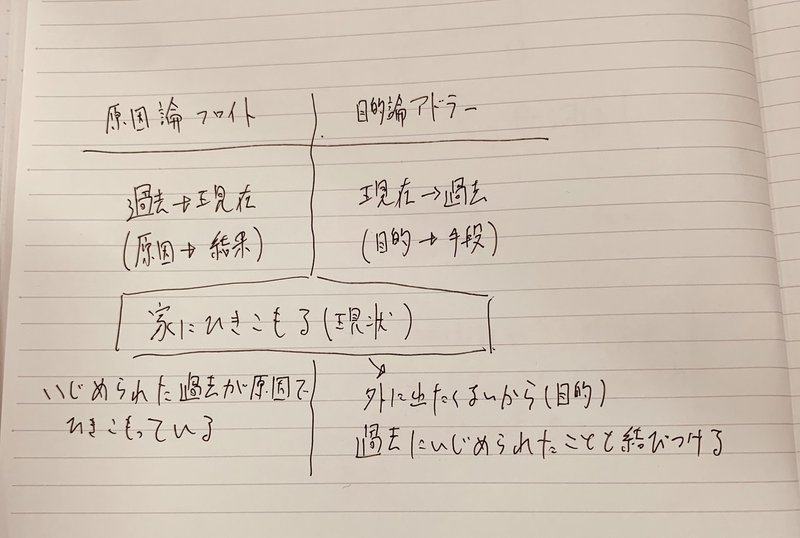 原因論 フロイト
目的論 アドラー
過去→現在
現在→過去
(原因→結果)
(目的→手段)
家にひきこもる(現状)
いじめられた過去が原因で
ひきこもっている
外に出たくないから(目的)
過去にいじめられたことと結びつける